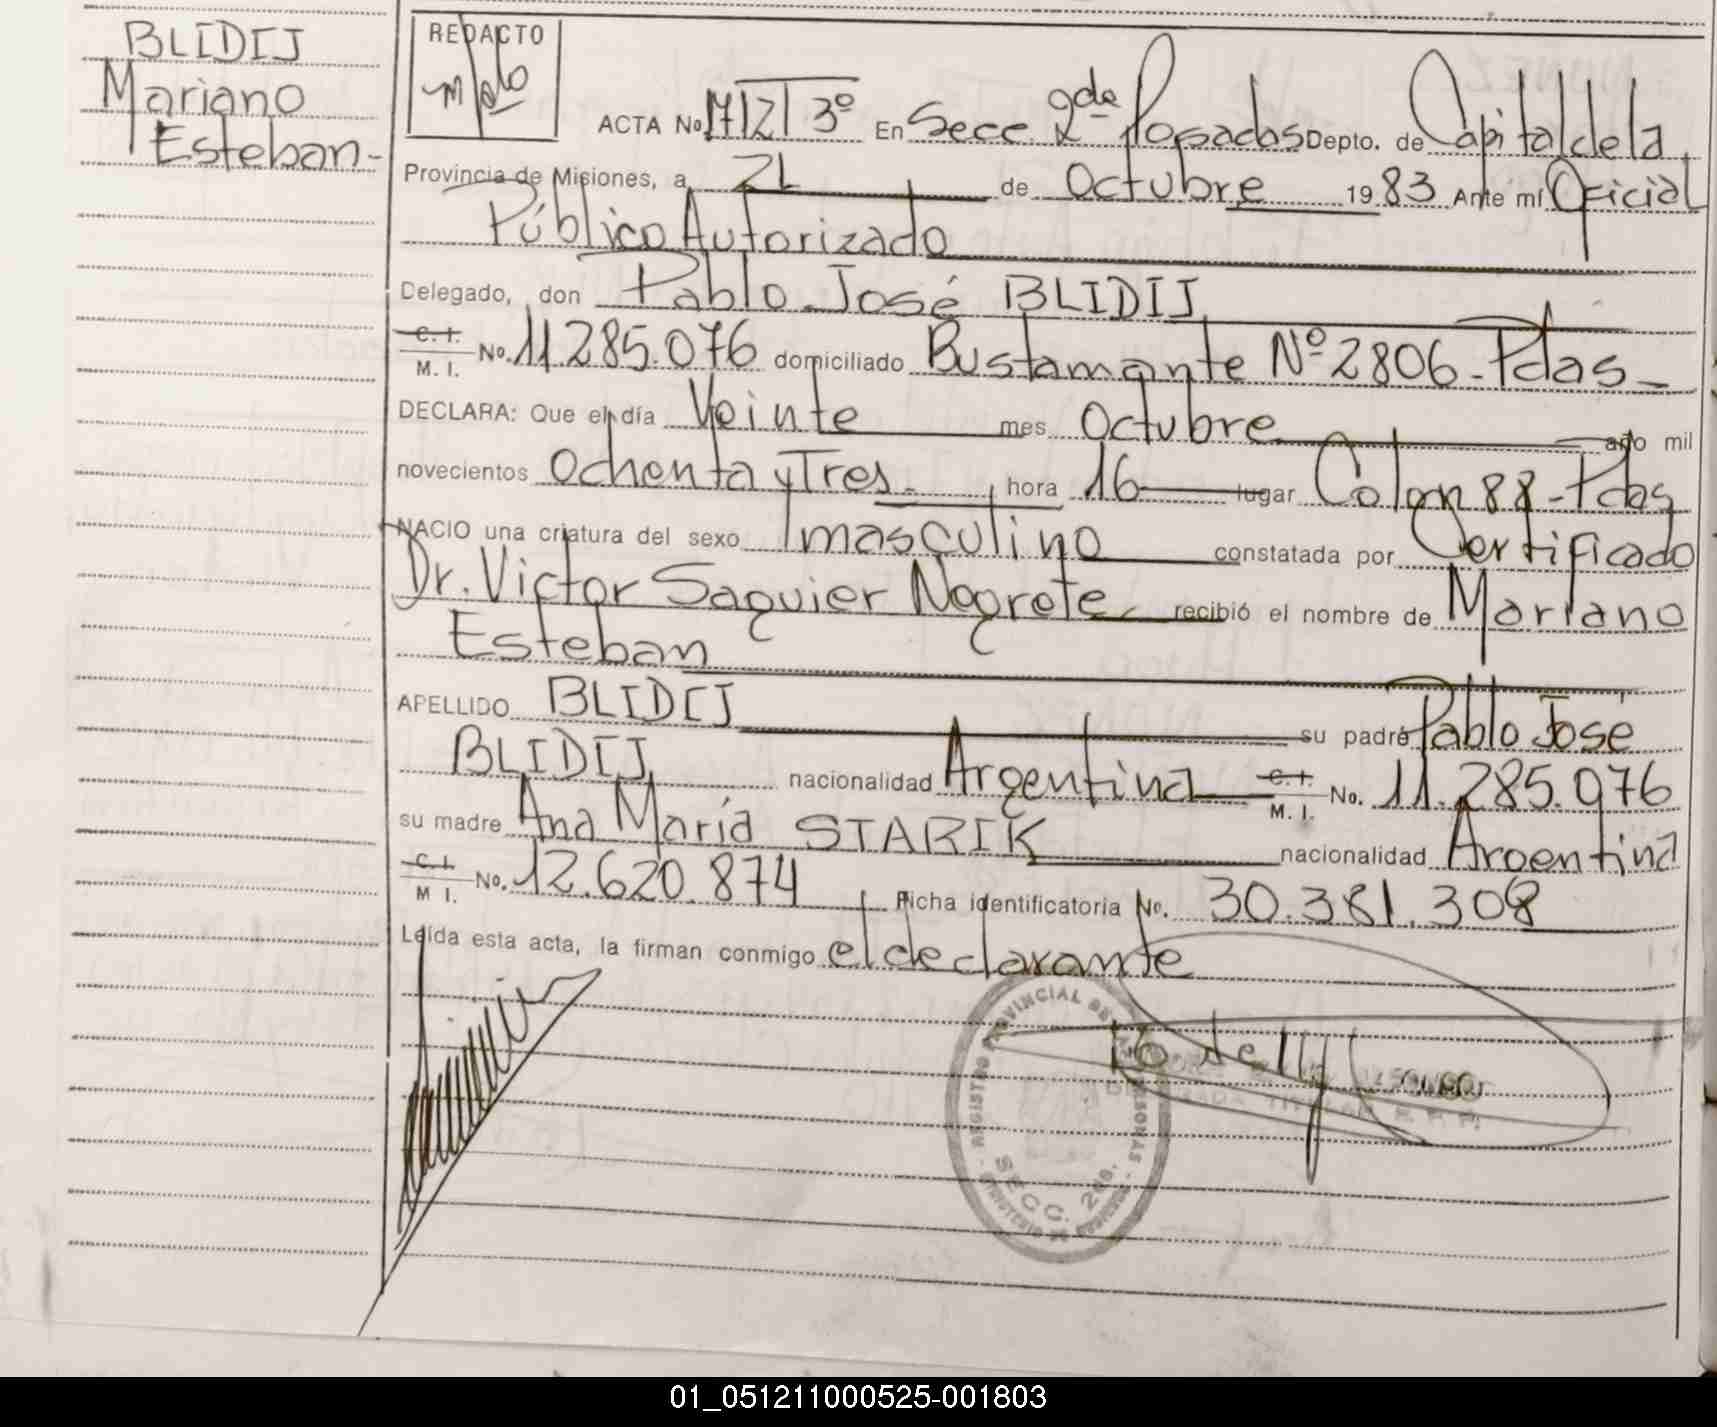 BLIDIJ
Mariano
Esteban-
REDACTO
ACTA No. 1712 T 3º En Secc. 2da Posadas Depto. de Capital de la
Provincia de Misiones, a 21 de Octubre 1983 Ante mí Oficial
Público Autorizado
Delegado, don Pablo José BLIDIJ
C. I. M. I. No. 11.285.076 domiciliado Bustamante Nº 2806-Pdas-
DECLARA: Que el día Veinte mes Octubre año mil
novecientos Ochenta y Tres- hora 16 lugar Colon 88-Pdas
NACIO una criatura del sexo masculino constatada por Certificado
Dr. Victor Saguier Negrete recibió el nombre de Mariano
Esteban
APELLIDO BLIDIJ su padre Pablo José
BLIDIJ nacionalidad Argentina C. I. M. I. No. 11.285.076
su madre Ana María STARIK nacionalidad Argentina
C. I. M I. No. 12.620.874 Ficha identificatoria No. 30.381.308
Leída esta acta, la firman conmigo el declarante
REGISTRO PROVINCIAL DE LAS PERSONAS
SECC. 2da.
01_051211000525-001803